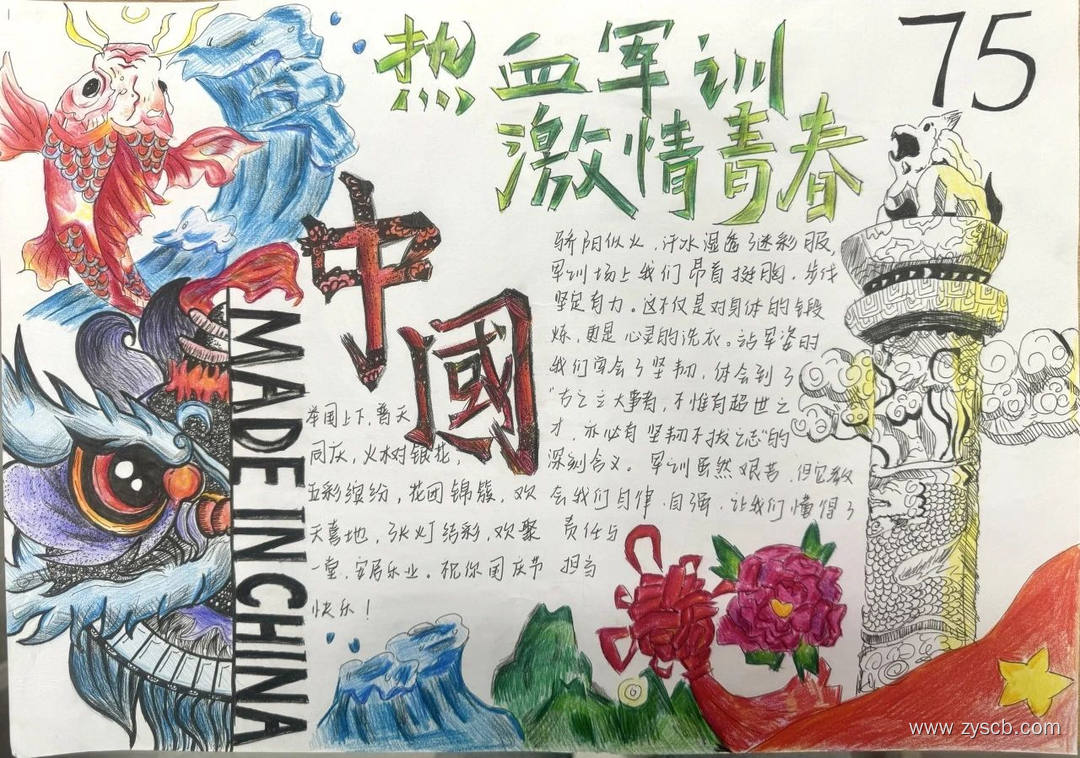 热血军训
激情青春
75
中
國
MADE IN CHINA
骄阳似火,汗水湿透了迷彩服,
军训场上我们昂首挺胸,步伐
坚定有力。这不仅是对身体的锻
炼,更是心灵的洗衣。站军姿时
我们学会了坚韧,体会到了
“古之立大事者,不惟有超世之
才,亦必有坚韧不拔之志”的
深刻含义。军训虽然艰苦,但它教
会我们自律、自强,让我们懂得了
责任与
担当
举国上下,普天
同庆,火树银花,
五彩缤纷,花团锦簇,欢
天喜地,张灯结彩,欢聚
一堂,安居乐业。祝你国庆节
快乐!
www.zyscb.com